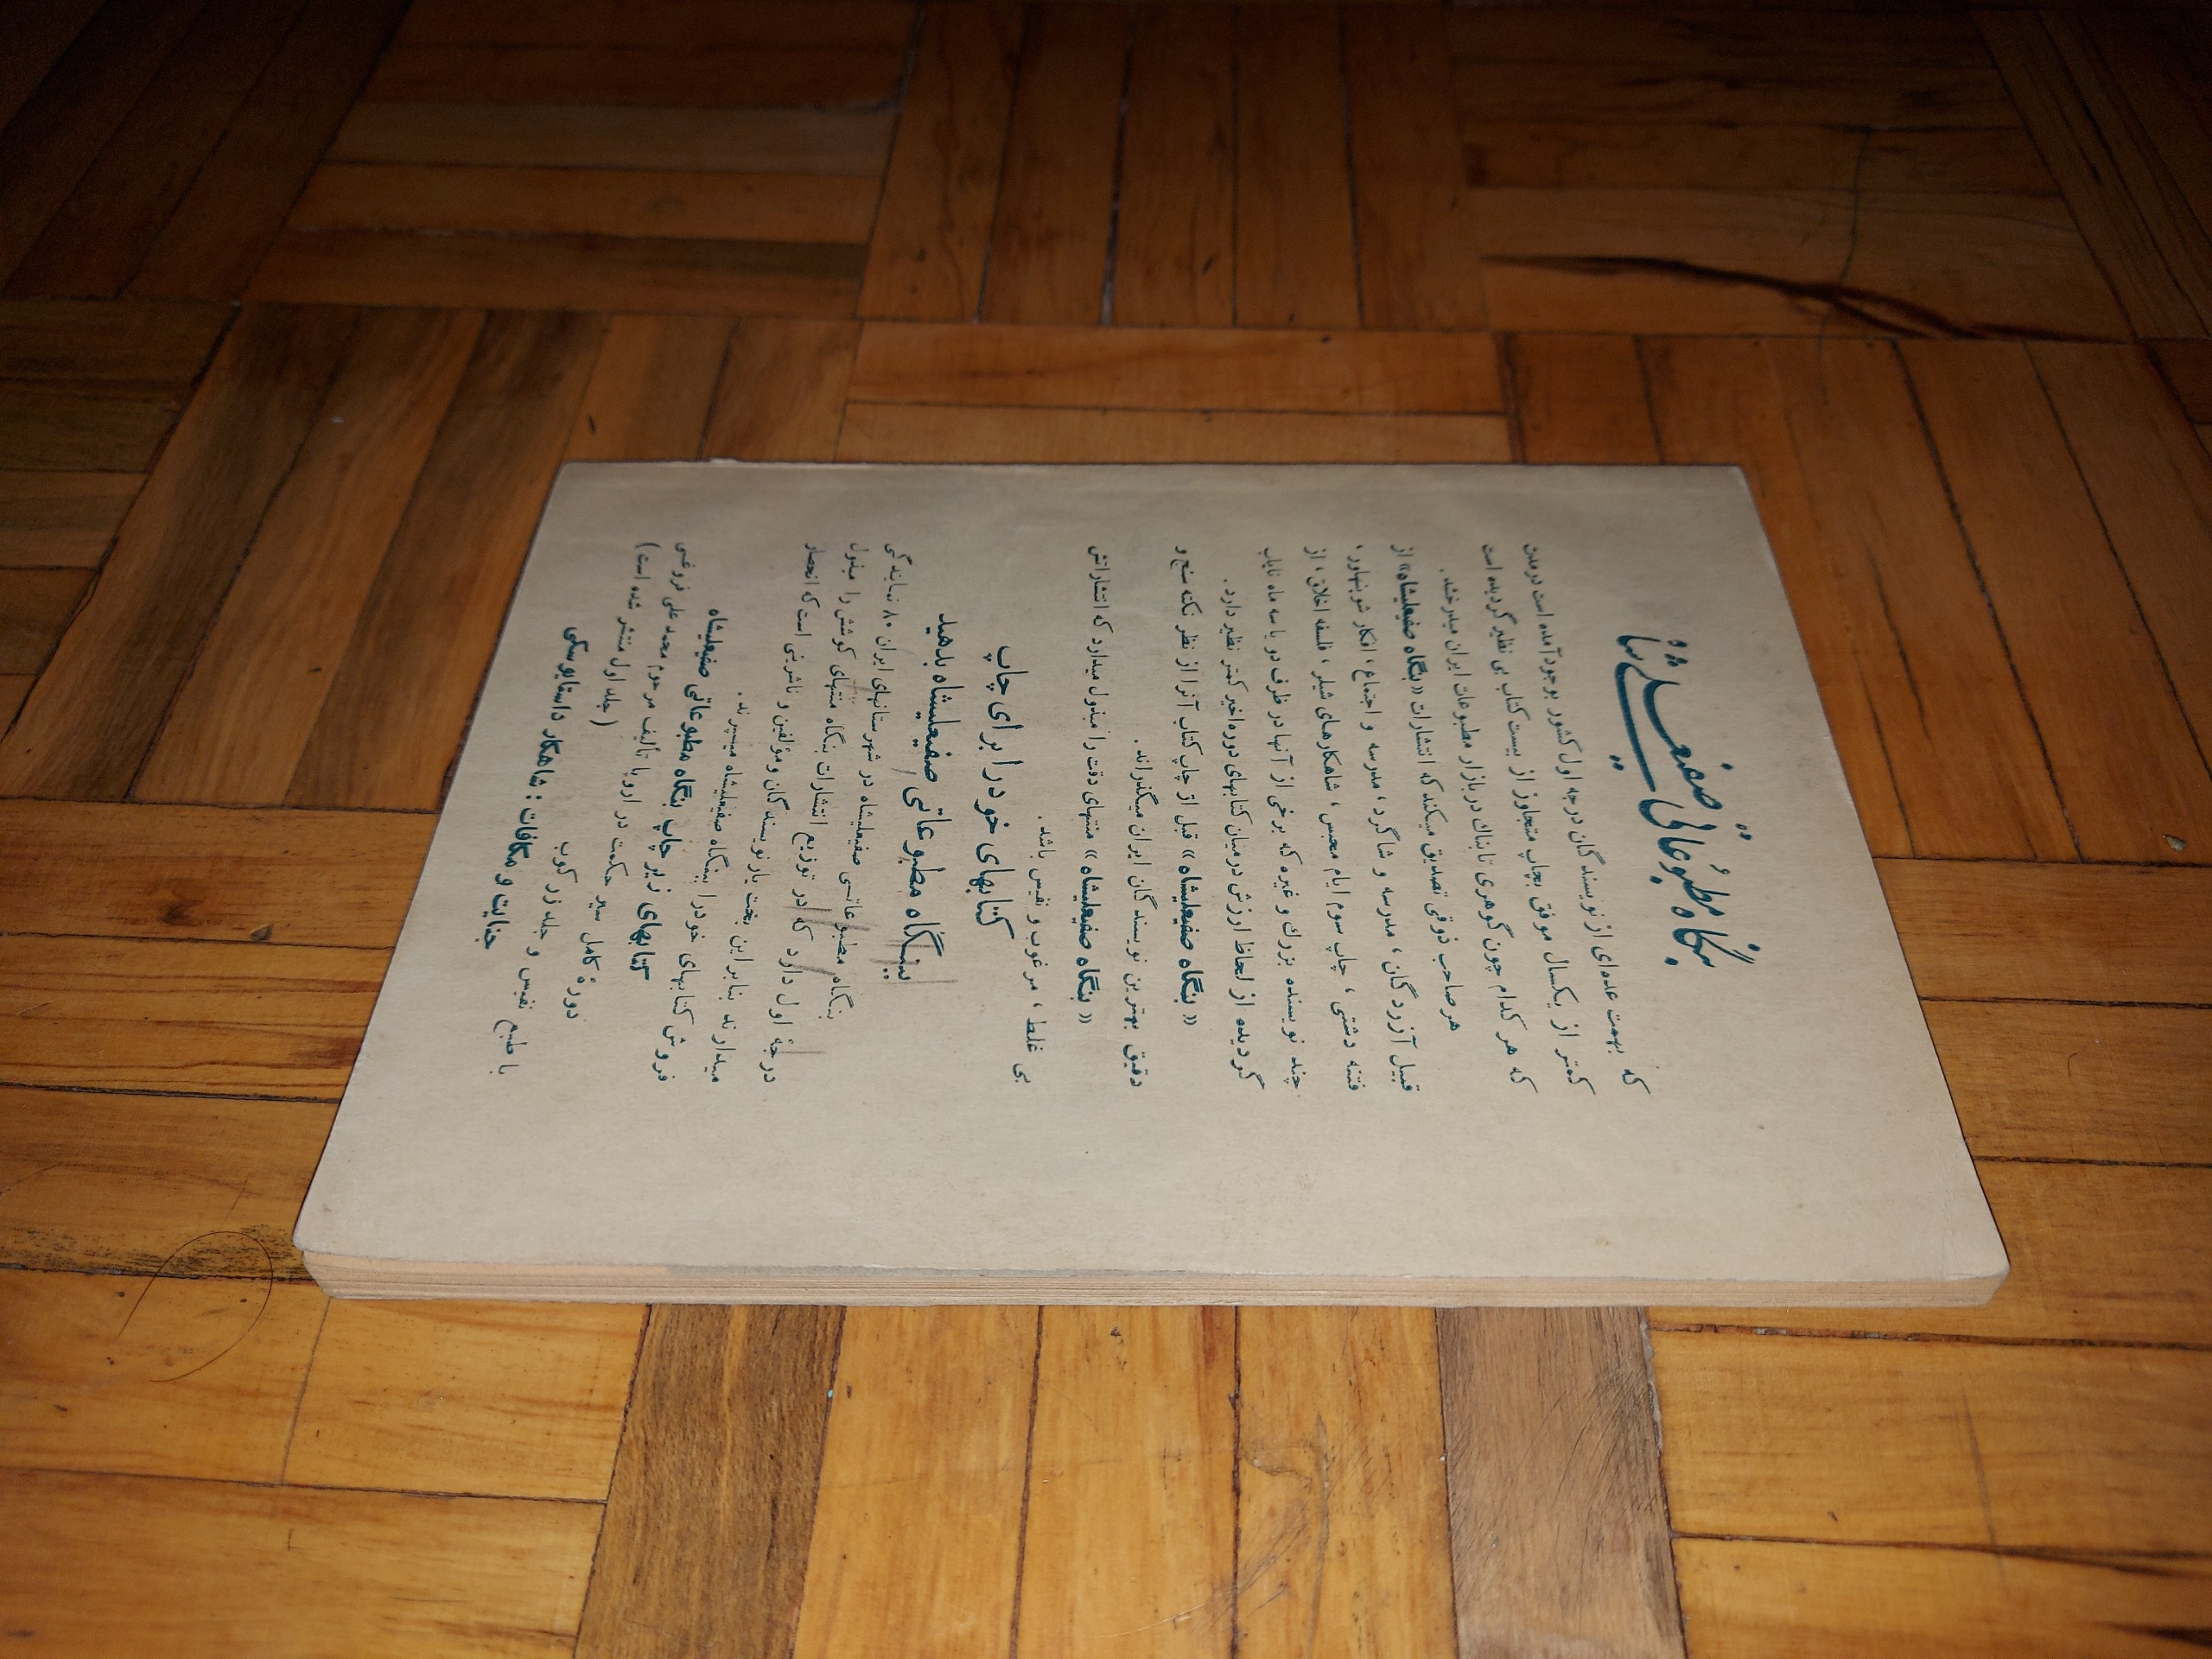 بنگاه مطبوعاتی صفیعلیشاه
که بهمت عده‌ای از نویسندگان درجه اول کشور بوجود آمده است در مدت
کمتر از یکسال موفق بچاپ متجاوز از بیست کتاب بی نظیر گردیده است
که هر کدام چون گوهری تابناك در بازار مطبوعات ایران میدرخشد.
هر صاحب ذوقی تصدیق میکند که انتشارات «بنگاه صفیعلیشاه» از
قبیل آزردگان، مدرسه و شاگرد، مدرسه و اجتماع، افکار شوپنهاور،
فتنه دشتی، چاپ سوم ایام محبس، شاهکارهای شیلر، فلسفه اخلاق، از
چند نویسنده بزرك و غیره که برخی از آنها در ظرف دو یا سه ماه نایاب
گردیده از لحاظ ارزش در میان کتابهای دوره اخیر کمتر نظیر دارد.
«بنگاه صفیعلیشاه» قبل از چاپ کتاب آنرا از نظر نکته سنج و
دقیق بهترین نویسندگان ایران میگذراند.
«بنگاه صفیعلیشاه» منتهای دقت را مبذول میدارد که انتشاراتش
بی غلط، مرغوب و نفیس باشد.
کتابهای خود را برای چاپ
ببنگاه مطبوعاتی صفیعلیشاه بدهید
بنگاه مطبوعاتی صفیعلیشاه در شهرستانهای ایران ۸۰ نمایندگی
درجه اول دارد که در توزیع انتشارات بنگاه منتهای کوشش را مبذول
میدارند بنابراین بخت یار نویسندگان و مؤلفین و ناشرینی است که انحصار
فروش کتابهای خود را ببنگاه صفیعلیشاه میسپرند.
کتابهای زیر چاپ بنگاه مطبوعاتی صفیعلیشاه
دورۀ کامل سیر حکمت در اروپا تألیف مرحوم محمد علی فروغی
با طبع نفیس و جلد زرکوب (جلد اول منتشر شده است)
جنایت و مکافات: شاهکار داستایوسکی